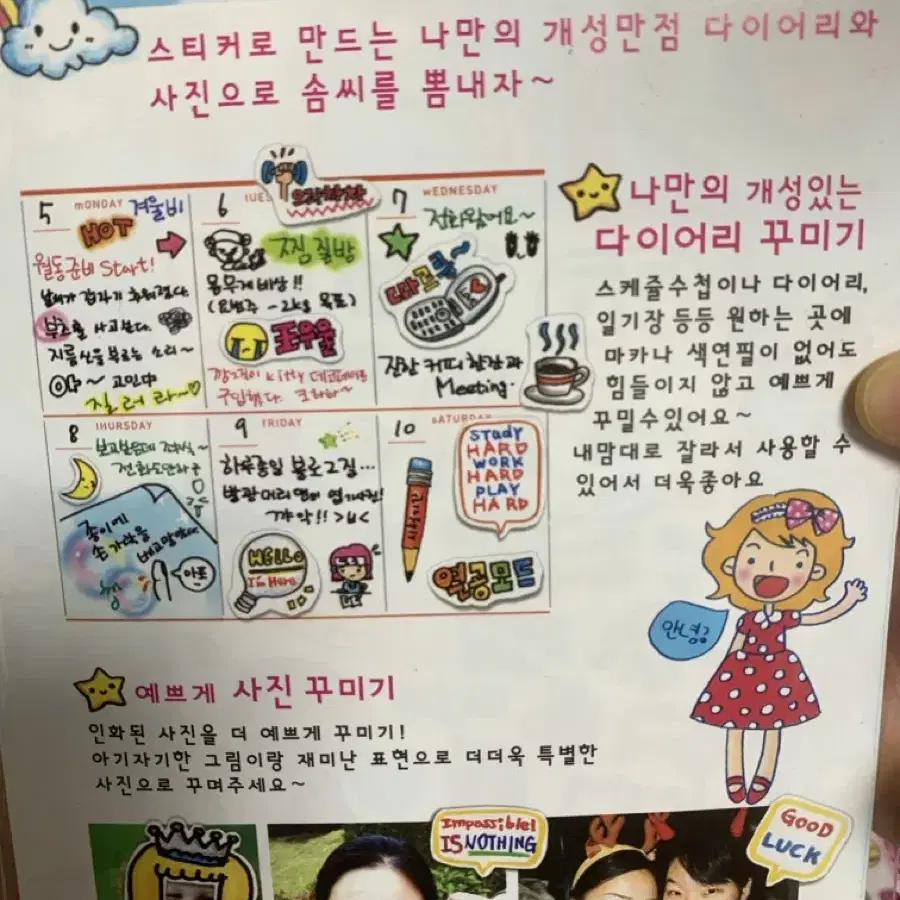 스티커로 만드는 나만의 개성만점 다이어리와
사진으로 솜씨를 뽐내자~
5 MONDAY 겨울비
HOT
월동준비 Start!
날씨가 갑자기 추워졌다.
부츠를 사고싶다.
지름신을 부르는 소리~
~ 고민中
질러라~♡
6 TUES
몸무게 비상!!
(요번주 -2kg 목표)
우울
구입했다.
7 WEDNESDAY
전화왔어요~
진한 커피 한잔과
Meeting.
8 THURSDAY
종이에
손가락을
베고말았다
아포
9 FRIDAY
하루종일 블로그질...
꺄악!! >ㅂ<
HELLO
I'm Here
10 SATURDAY
STUDY
HARD
WORK
HARD
PLAY
HARD
열공모드
나만의 개성있는
다이어리 꾸미기
스케줄수첩이나 다이어리,
일기장 등등 원하는 곳에
마카나 색연필이 없어도
힘들이지 않고 예쁘게
꾸밀수있어요~
내맘대로 잘라서 사용할 수
있어서 더욱좋아요
안녕?
예쁘게 사진 꾸미기
인화된 사진을 더 예쁘게 꾸미기!
아기자기한 그림이랑 재미난 표현으로 더더욱 특별한
사진으로 꾸며주세요~
Impossible!
IS NOTHING
GOOD
LUCK